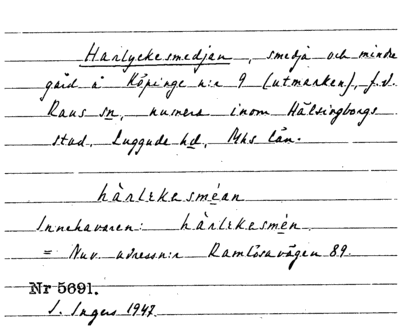 Harlyckesmedjan, smedja och mindre
gård å Köpinge n:r 9 (utmarken), f.d.
Raus sn, numera inom Hälsingborgs
stad, Luggude hd, Mhs län.
hàrlɩkasméan
Innehavaren: hàrlɩkesmén
= Nuv. adressn:r Ramlösavägen 89.
Nr 5691.
I. Ingers 1947.